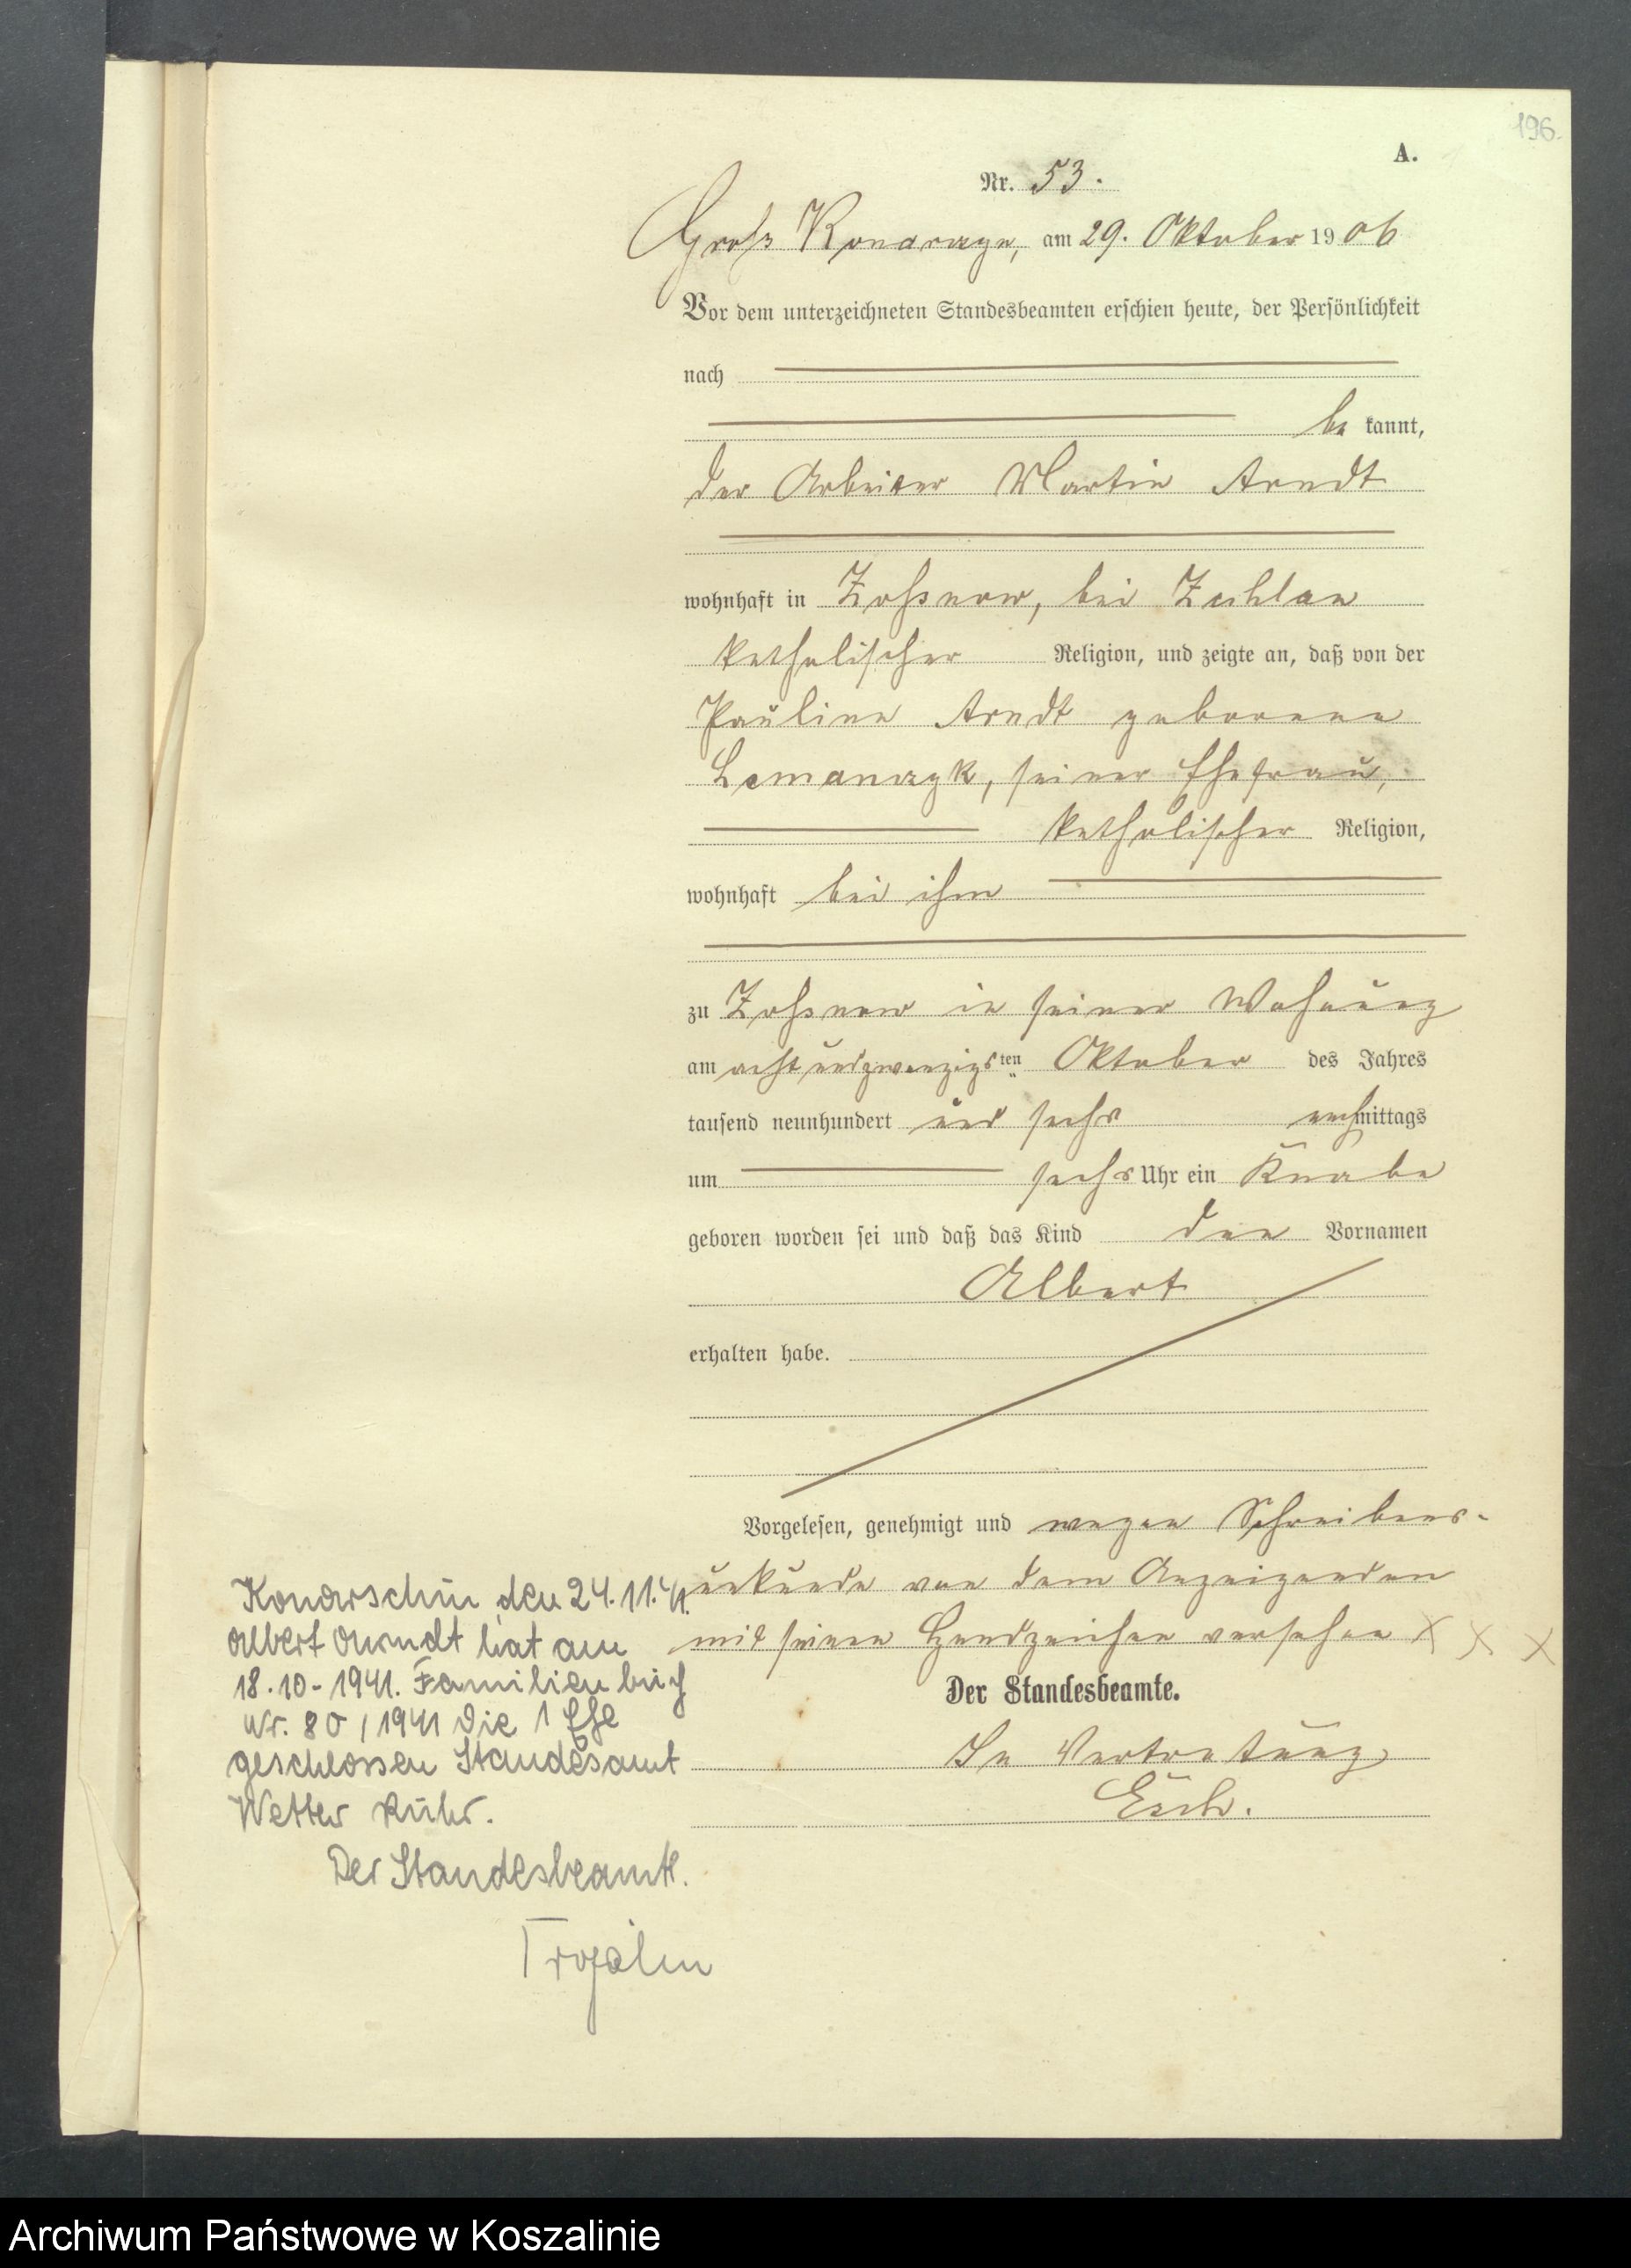 196.
A.
Nr. 53.
Groß Konarczyn, am 29. Oktober 1906
Vor dem unterzeichneten Standesbeamten erschien heute, der Persönlichkeit
nach
be kannt,
der Arbeiter Martin Arndt
wohnhaft in Zoßnow, bei Zechlau
katholischer Religion, und zeigte an, daß von der
Pauline Arndt geborene
Lemanczyk, seiner Ehefrau,
katholischer Religion,
wohnhaft bei ihm
zu Zoßnow in seiner Wohnung
am achtundzwanzigsten Oktober des Jahres
tausend neunhundert und sechs nachmittags
um sechs Uhr ein Knabe
geboren worden sei und daß das Kind den Vornamen
Albert
erhalten habe.
Vorgelesen, genehmigt und wegen Schreibens-
unkunde von dem Anzeigenden
mit seinem Handzeichen versehen X X X
Der Standesbeamte.
In Vertretung
Konarschin den 24.11.41.
Albert Arndt hat am
18.10-1941. Familienbuch
Nr. 80/1941 die 1 Ehe
geschlossen Standesamt
Wetter Ruhr.
Der Standesbeamte.
Archiwum Państwowe w Koszalinie